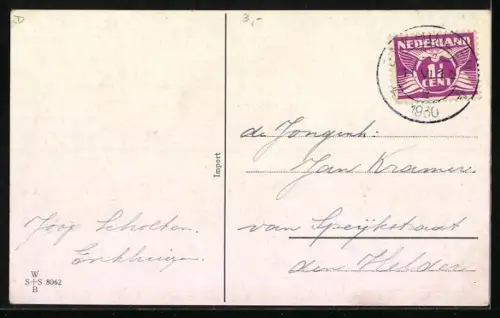 3,-
NEDERLAND
1½
CENT
1930
de Jongenh:
Jan Kramer.
van Speijkstraat
den Helder
Joop Scholten.
Enkhuizen.
Import
W
S+S 8062
B